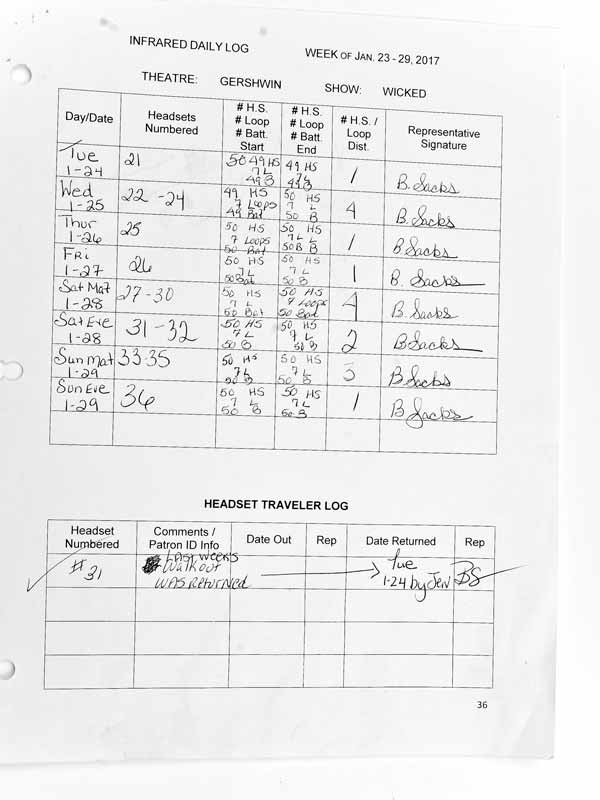 INFRARED DAILY LOG WEEK OF JAN. 23 - 29, 2017
THEATRE: GERSHWIN SHOW: WICKED
Day/Date Headsets Numbered # H.S. # Loop # Batt. Start # H.S. # Loop # Batt. End # H.S. / Loop Dist. Representative Signature
Tue 1-24 21 50 49 HS 7 L 49 B 49 HS 7L 49 B 1 B. Sacks
Wed 1-25 22 - 24 49 HS 7 Loops 49 Bat 50 HS 7 L 50 B 4 B. Sacks
Thur 1-26 25 50 HS 7 Loops 50 Bat 50 HS 7 L L 50B B 1 B. Sacks
Fri 1-27 26 50 HS 7L 50 Bat 50 HS 7 L 50 B 1 B. Sacks
Sat Mat 1-28 27-30 50 HS 7 L 50 Bat 50 HS 7 Loops 50 Bat 4 B. Sacks
Sat Eve 1-28 31-32 50 HS 7L 50 B 50 HS 7 L 50 B 2 B Sacks
Sun Mat 1-29 33-35 50 HS 7L 50 B 50 HS 7 L 50 B 3 B Sacks
Sun Eve 1-29 36 50 HS 7 L 50 B 50 HS 7 L 50 B 1 B Sacks
HEADSET TRAVELER LOG
Headset Numbered Comments / Patron ID Info Date Out Rep Date Returned Rep
# 31 Last weeks Walkout WAS Returned Tue 1-24 by Jen BS
36